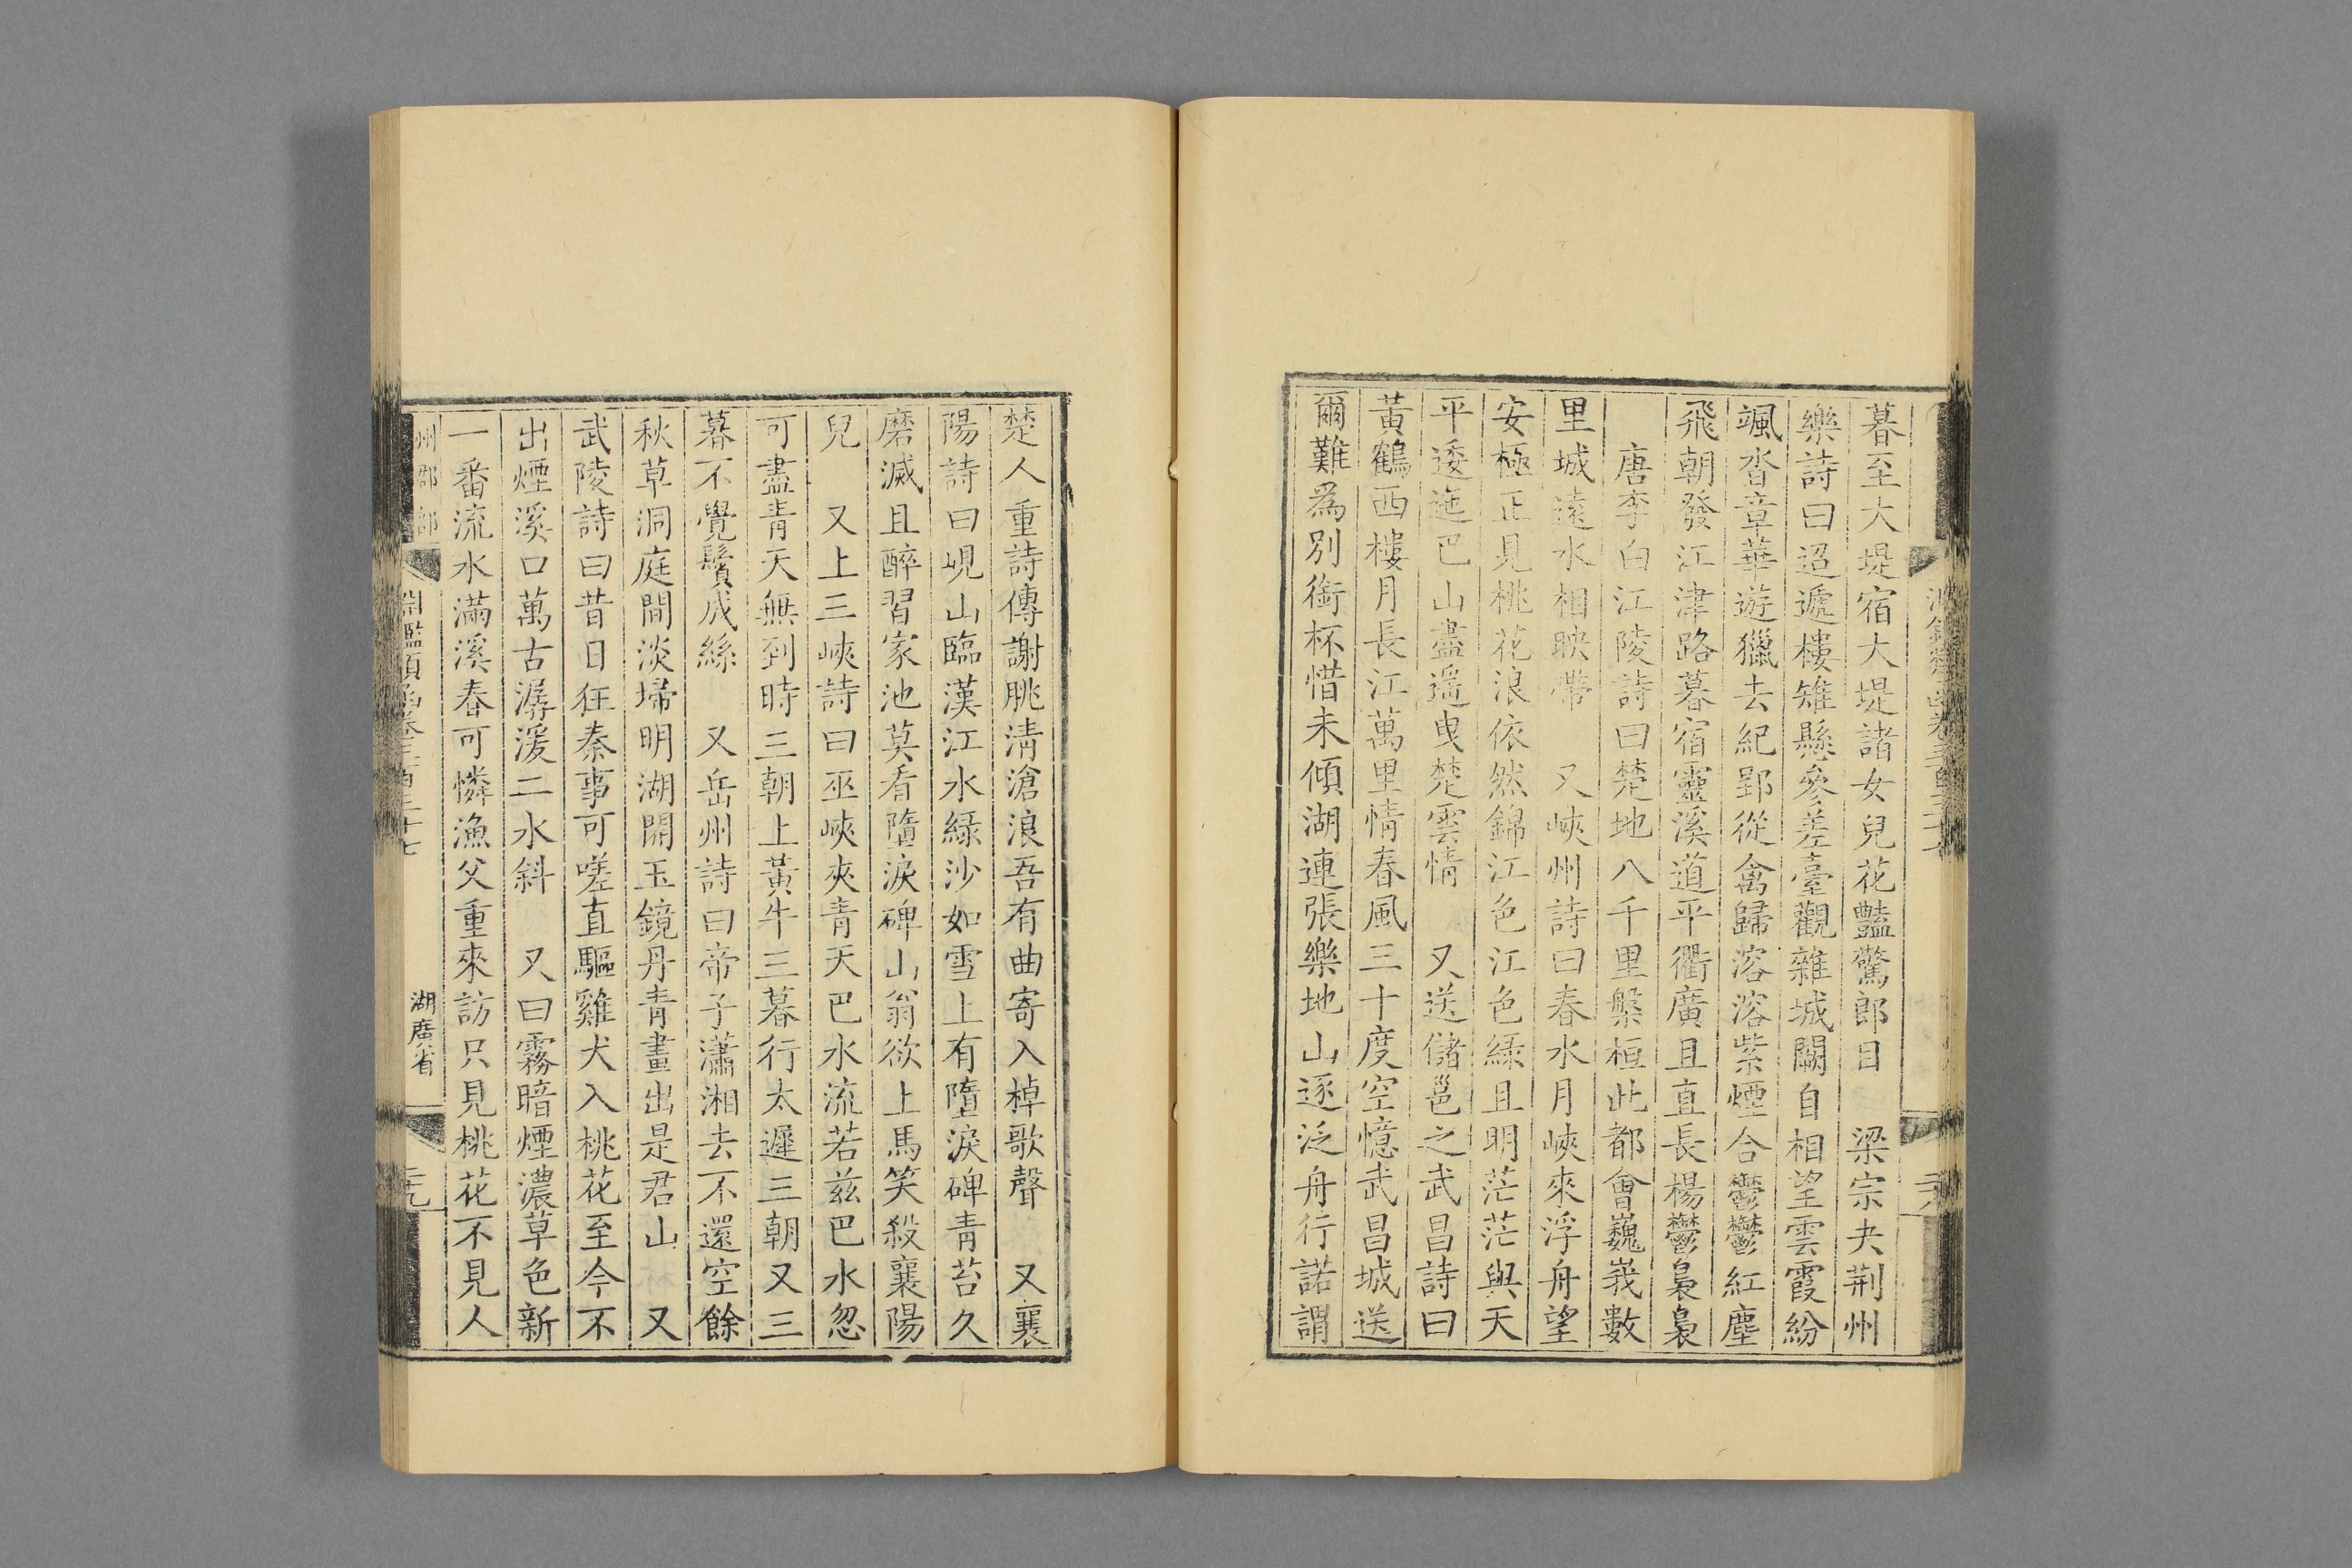 暮至大堤宿大堤諸女兒花豔驚郎目　梁宗夬荆州
樂詩曰迢遞樓雉懸參差臺觀雜城闕自相望雲霞紛
颯沓章華遊獵去紀郢從禽歸溶溶紫煙合鬱鬱紅塵
飛朝發江津路暮宿靈溪道平衢廣且直長楊鬱裊裊
唐李白江陵詩曰楚地八千里槃桓此都會巍峩數
里城遠水相映帶　又峽州詩曰春水月峽來浮舟望
安極正見桃花浪依然錦江色江色綠且明茫茫與天
平逶迤巴山盡遥曳楚雲情　又送儲邕之武昌詩曰
黃鶴西樓月長江萬里情春風三十度空憶武昌城送
爾難爲別銜杯惜未傾湖連張樂地山逐泛舟行諾謂
楚人重詩傳謝朓淸滄浪吾有曲寄入棹歌聲　又襄
陽詩曰峴山臨漢江水綠沙如雪上有墮淚碑青苔久
磨滅且醉習家池莫看墮淚碑山翁欲上馬笑殺襄陽
兒　又上三峽詩曰巫峽夾青天巴水流若茲巴水忽
可盡青天無到時三朝上黃牛三暮行太遲三朝又三
暮不覺鬢成絲　又岳州詩曰帝子瀟湘去不還空餘
秋草洞庭間淡埽明湖開玉鏡丹青畫出是君山　又
武陵詩曰昔日狂秦事可嗟直驅雞犬入桃花至今不
出煙溪口萬古潺湲二水斜　又曰霧暗煙濃草色新
一番流水滿溪春可憐漁父重來訪只見桃花不見人
州郡部
淵鑑類函卷三百三十七
湖廣省
二九